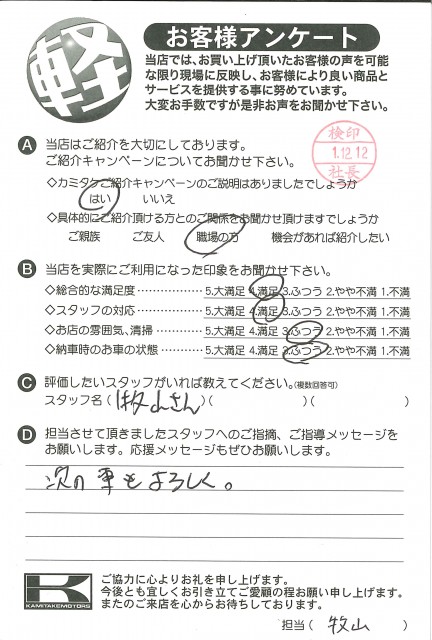 軽
お客様アンケート
当店では、お買い上げ頂いたお客様の声を可能
な限り現場に反映し、お客様により良い商品と
サービスを提供する事に努めています。
大変お手数ですが是非お声をお聞かせ下さい。
検印
1.12.12
社長
A 当店はご紹介を大切にしております。
ご紹介キャンペーンについてお聞かせ下さい。
◇カミタケご紹介キャンペーンのご説明はありましたでしょうか
はい いいえ
◇具体的にご紹介頂ける方とのご関係をお聞かせ頂けますでしょうか
ご親族 ご友人 職場の方 機会があれば紹介したい
B 当店を実際にご利用になった印象をお聞かせ下さい。
◇総合的な満足度 ・・・・・・・・・・・・ 5.大満足 4.満足 3.ふつう 2.やや不満 1.不満
◇スタッフの対応 ・・・・・・・・・・・・ 5.大満足 4.満足 3.ふつう 2.やや不満 1.不満
◇お店の雰囲気、清掃 ・・・・・・・・ 5.大満足 4.満足 3.ふつう 2.やや不満 1.不満
◇納車時のお車の状態 ・・・・・・・・ 5.大満足 4.満足 3.ふつう 2.やや不満 1.不満
C 評価したいスタッフがいれば教えてください。(複数回答可)
スタッフ名 ( 牧山さん )( )( )
D 担当させて頂きましたスタッフへのご指摘、ご指導メッセージを
お願いします。応援メッセージもぜひお願いします。
次の車もよろしく。
K
KAMITAKEMOTORS
ご協力に心よりお礼を申し上げます。
今後とも宜しくお引き立てご愛顧の程お願い申し上げます。
またのご来店を心からお待ちしております。
担当 ( 牧山 )